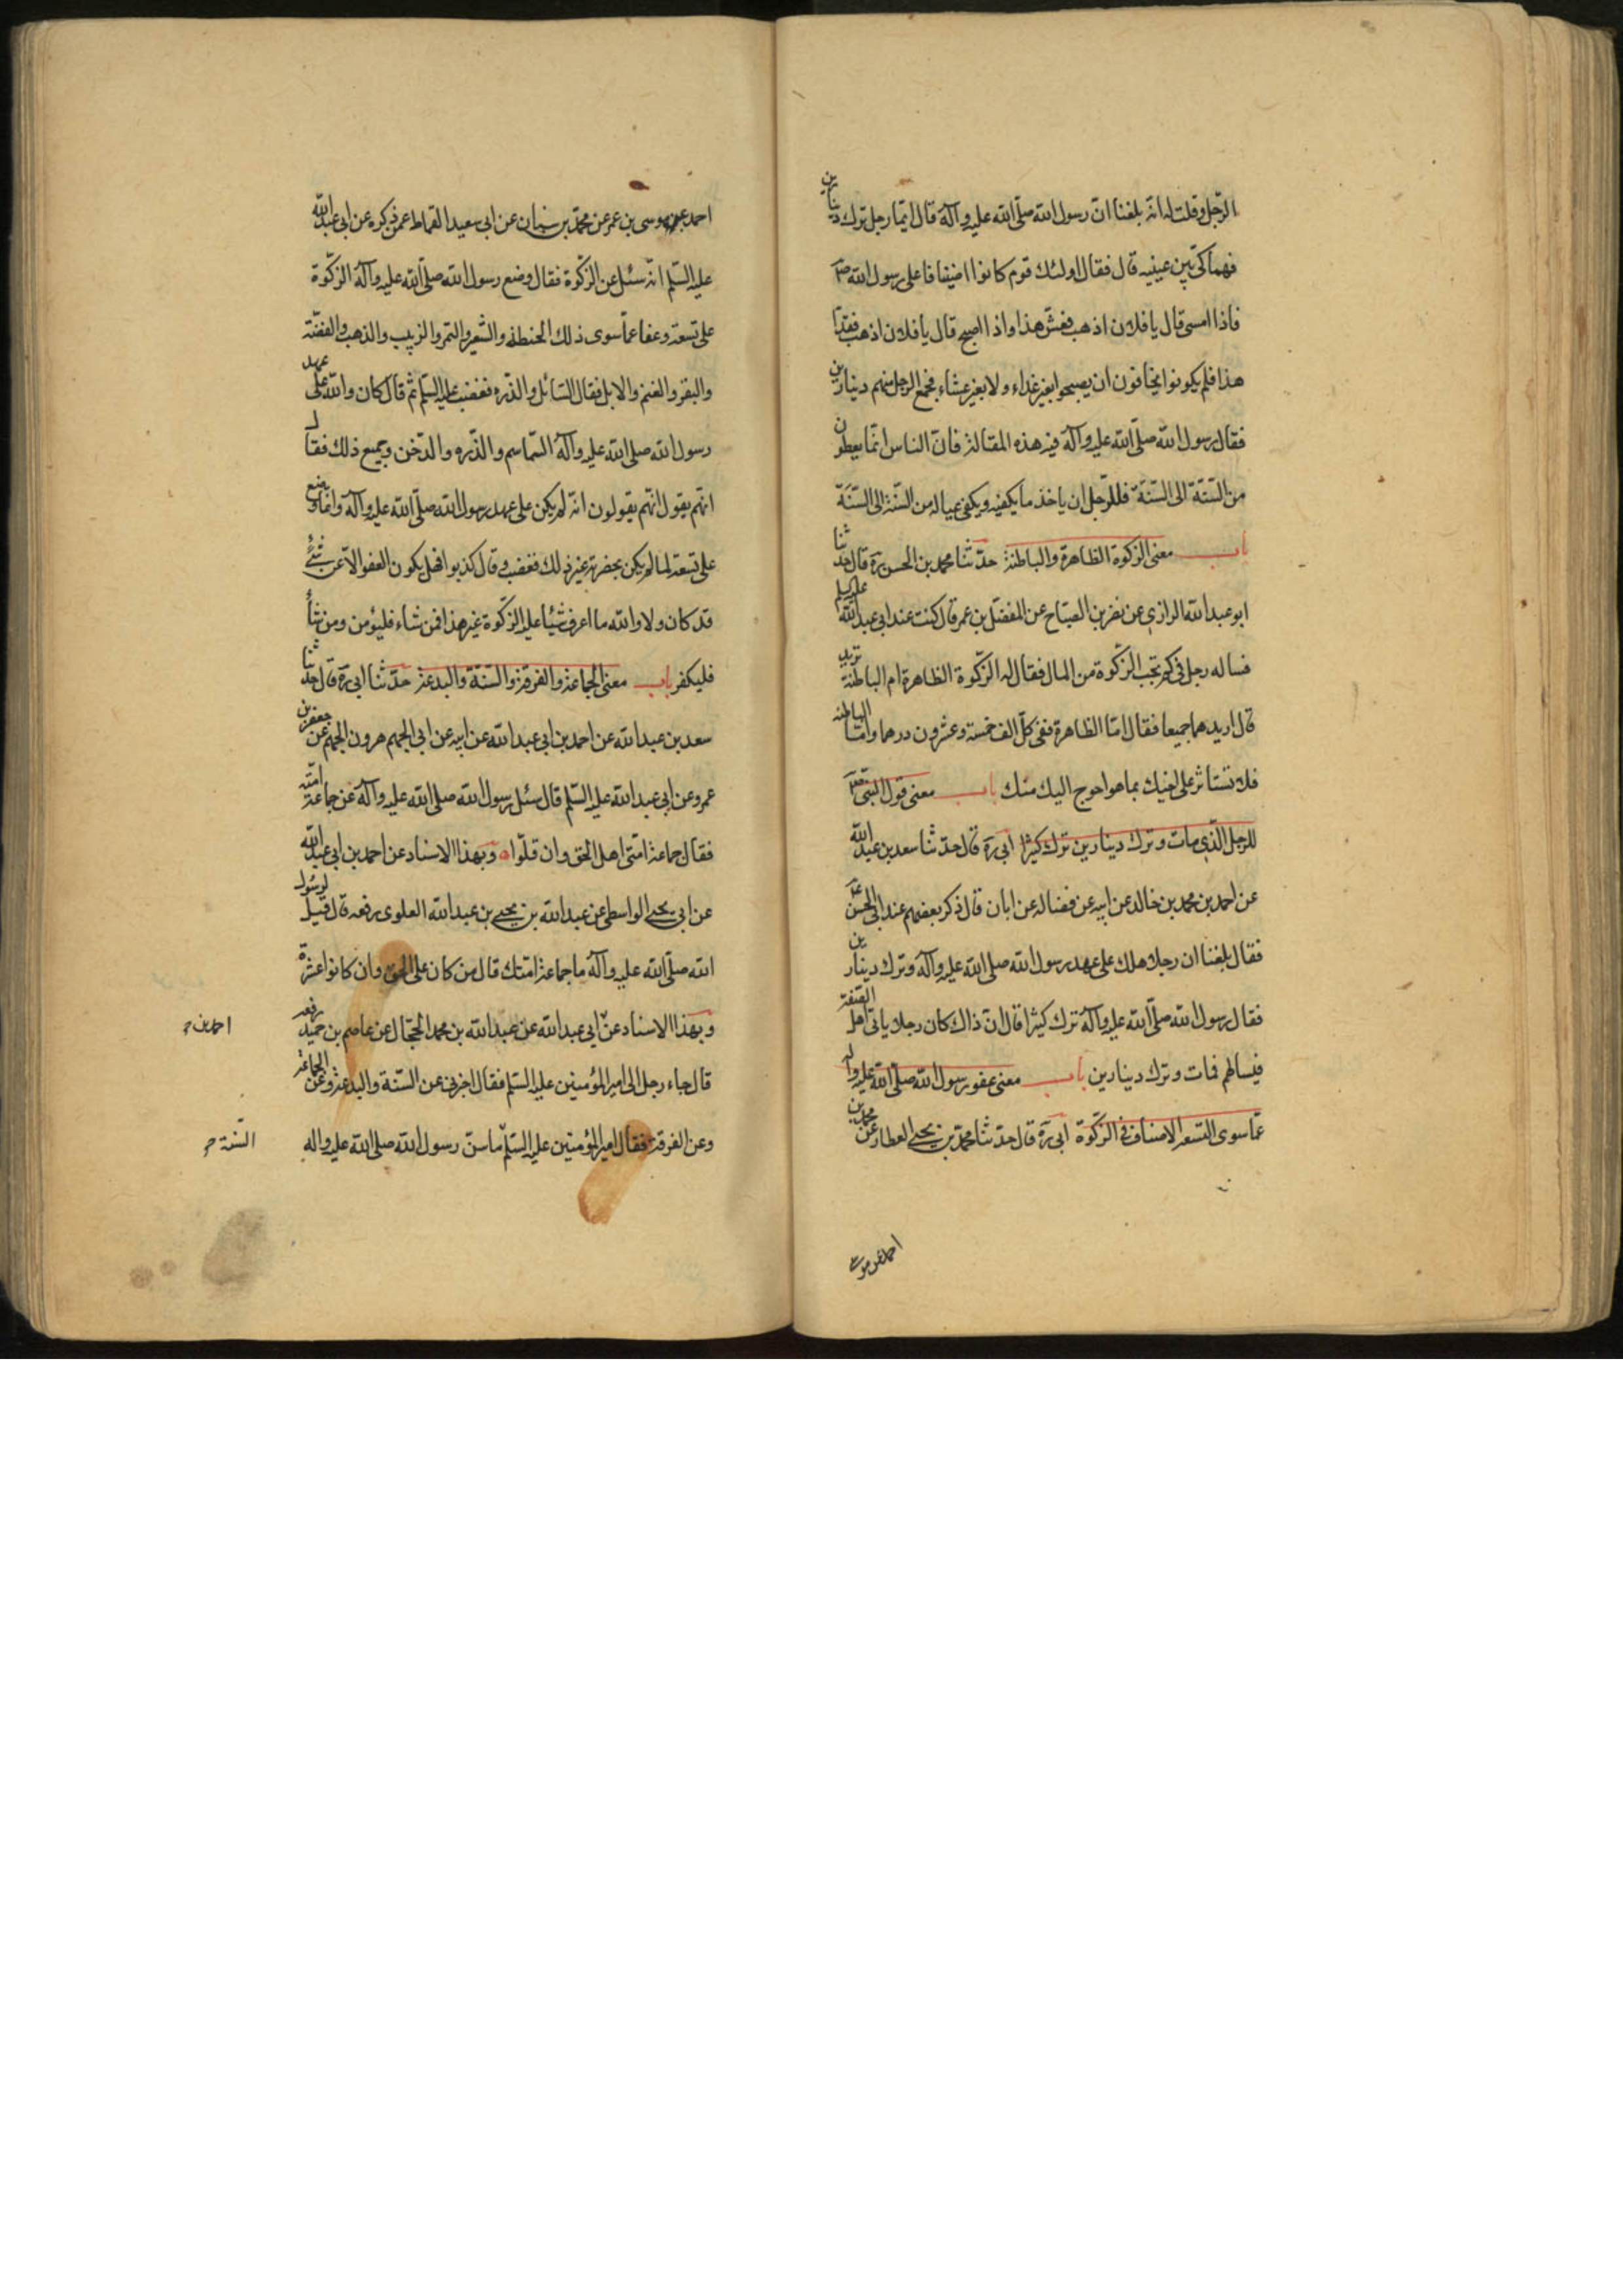 الرّجل وقلت له انّه بلغنا انّ رسول الله صلّى الله عليه وآله قال ايّما رجل ترك دينارين
فهما كىّ بين عينيه قال فقال اولئك قوم كانوا اضيافا على رسول الله صم
فاذا امسى قال يا فلان اذهب فعشّ هذا واذا اصبح قال يا فلان اذهب فغدّ
هذا فلم يكونوا يخافون ان يصبحوا بغير غداء ولا بغير عشاء فجمع الرجل منهم دينارين
فقال رسول الله صلّى الله عليه وآله فيه هذه المقالة فانّ الناس انّما يعطون
من السّنة الى السّنة فللرّجل ان ياخذ ما يكفيه ويكفى عياله من السّنة الى السّنة
باب معنى الزكوة الظاهرة والباطنة حدّثنا محمد بن الحسن ره قال حدثنا
ابو عبد الله الرازي عن نصر بن الصباح عن المفضّل بن عمر قال كنت عند ابى عبد الله عليه السلم
فساله رجل فى كم تجب الزّكوة من المال فقال له الزّكوة الظاهرة ام الباطنة تريد
قال اريدهما جميعا فقال امّا الظاهرة ففى كلّ الف خمسة وعشرون درهما وامّا الباطنة
فلا تستاثر على اخيك بما هو احوج اليك منك باب معنى قول النبى صم
للرجل الّذي مات وترك دينارين ترك كثيرا ابى ره قال حدّثنا سعد بن عبد الله
عن احمد بن محمد بن خالد عن ابيه عن فضاله عن ابان قال ذكر بعضهم عند ابى الحسن ع
فقال بلغنا ان رجلا هلك على عهد رسول الله صلى الله عليه وآله وترك دينارين
فقال رسول الله صلّى الله عليه وآله ترك كثيرا قال انّ ذاك كان رجلا ياتى اهل الصّفة
فيسالهم فمات وترك دينارين باب معنى عفو رسول الله صلّى الله عليه وآله
عمّا سوى التسعة الاصناف فى الزكوة ابى ره قال حدّثنا محمّد بن يحيى العطار عن محمد بن
احمد عن موسى
احمد عن موسى بن عمر عن محمّد بن سنان عن ابى سعيد القماط عمّن ذكره عن ابى عبد الله
عليه السّلم انّه سئل عن الزّكوة فقال وضع رسول الله صلّى الله عليه وآله الزّكوة
على تسعة وعفا عمّا سوى ذلك الحنطة والشعير والتمر والزبيب والذهب والفضّة
والبقر والغنم والابل فقال السّائل والذّره فغضب عليه السّلم ثم قال كان والله على عهد
رسول الله صلى الله عليه وآله السّماسم والذّره والدّخن وجميع ذلك فقال
انّهم يقول انّهم يقولون انّه لم يكن على عهد رسول الله صلّى الله عليه وآله وانّما وضع
على تسعة لما لم يكن بحضرته غير ذلك فغضب وقال كذبوا فهل يكون العفو الّا عن شئ
قد كان ولا والله ما اعرف شيئا عليه الزّكوة غير هذا فمن شاء فليؤمن ومن شاء
فليكفر باب معنى الجماعة والفرقة والسّنّة والبدعة حدّثنا ابى ره قال حدثنا
سعد بن عبد الله عن احمد بن ابى عبد الله عن ابيه عن ابى الجهم هرون الجهم عن جعفر بن
عمرو عن ابى عبد الله عليه السّلم قال سئل رسول الله صلّى الله عليه وآله عن جماعة امّته
فقال جماعة امّتى اهل الحق وان قلّوا ه وبهذا الاسناد عن احمد بن ابى عبد الله
عن ابى يحيى الواسطى عن عبد الله بن يحيى بن عبد الله العلوى رفعه قال قيل لرسول
الله صلّى الله عليه وآله ما جماعة امّتك قال من كان على الحق وان كانوا عشرة
وبهذا الاسناد عن ابى عبد الله عن عبد الله بن محمد الحجّال عن عاصم بن حميد رفعه
احمد بن
قال جاء رجل الى امير المؤمنين عليه السّلم فقال اخبرنى عن السّنة والبدعة وعن الجماعة
وعن الفرقة فقال امير المؤمنين عليه السّلم ما سنّ رسول الله صلى الله عليه واله
السّنّة